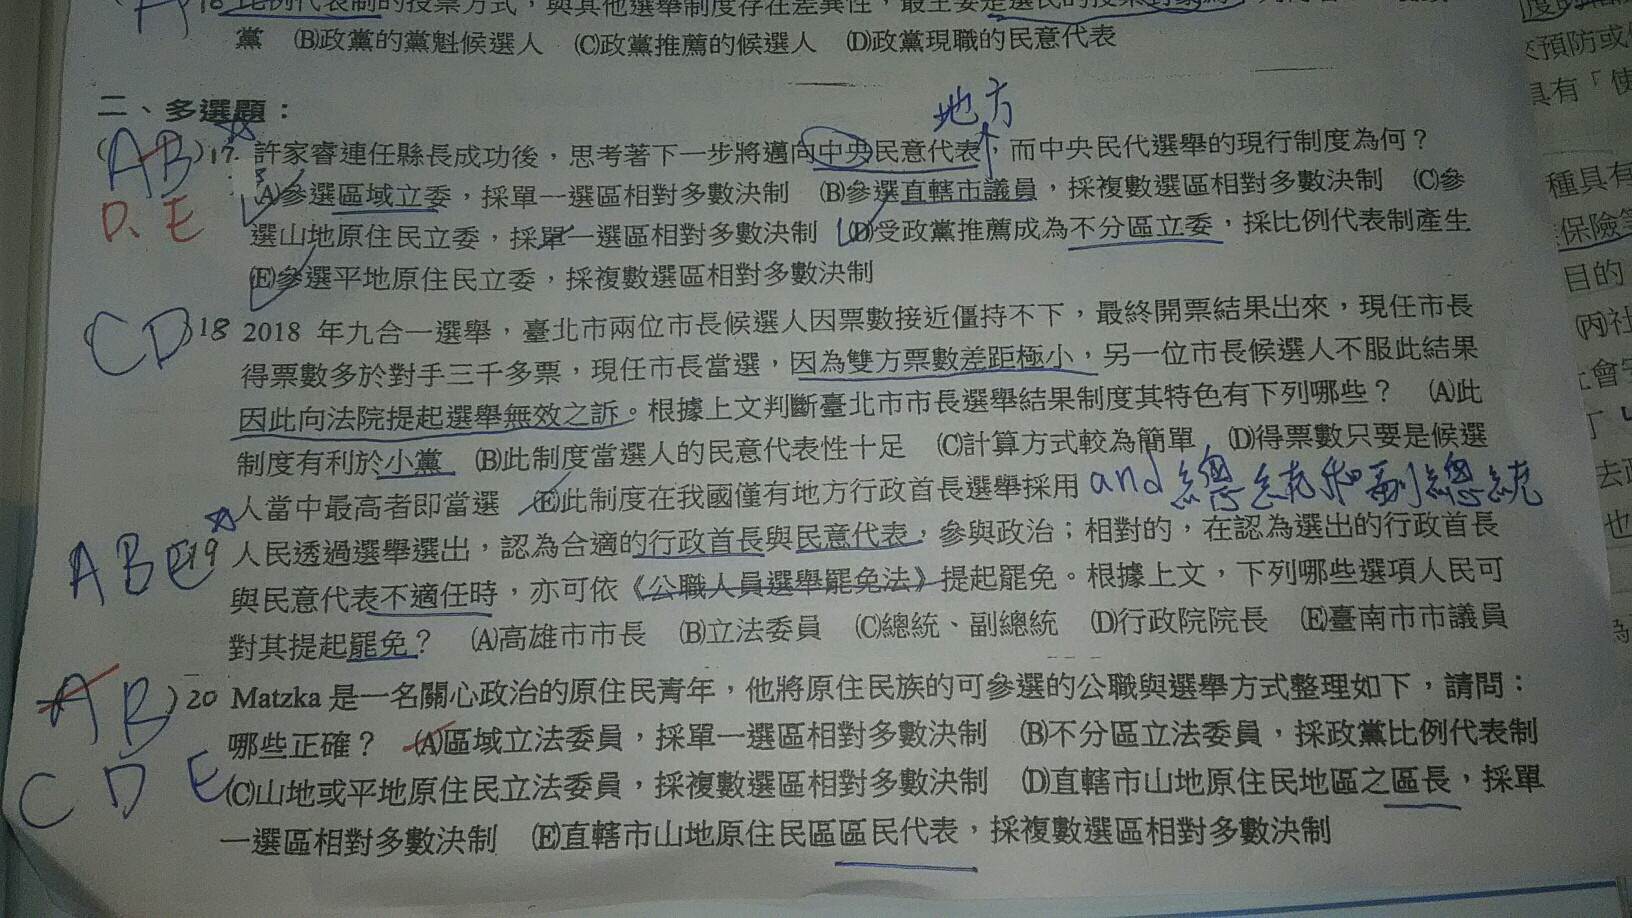 16 比例代表制的投票方式，與其他選舉制度存在差異性，最主要是選民的投票對象為
黨 (B)政黨的黨魁候選人 (C)政黨推薦的候選人 (D)政黨現職的民意代表
二、多選題：
地方
(AB)17. 許家睿連任縣長成功後，思考著下一步將邁向中央民意代表，而中央民代選舉的現行制度為何？
(A)參選區域立委，採單一選區相對多數決制 (B)參選直轄市議員，採複數選區相對多數決制 (C)參
D、E
選山地原住民立委，採單一選區相對多數決制 (D)受政黨推薦成為不分區立委，採比例代表制產生
(E)參選平地原住民立委，採複數選區相對多數決制
(CD)18 2018 年九合一選舉，臺北市兩位市長候選人因票數接近僵持不下，最終開票結果出來，現任市長
得票數多於對手三千多票，現任市長當選，因為雙方票數差距極小，另一位市長候選人不服此結果
因此向法院提起選舉無效之訴。根據上文判斷臺北市市長選舉結果制度其特色有下列哪些？ (A)此
制度有利於小黨 (B)此制度當選人的民意代表性十足 (C)計算方式較為簡單 (D)得票數只要是候選
人當中最高者即當選 (E)此制度在我國僅有地方行政首長選舉採用 and 總統和副總統
ABE 19 人民透過選舉選出，認為合適的行政首長與民意代表，參與政治；相對的，在認為選出的行政首長
與民意代表不適任時，亦可依《公職人員選舉罷免法》提起罷免。根據上文，下列哪些選項人民可
對其提起罷免？ (A)高雄市市長 (B)立法委員 (C)總統、副總統 (D)行政院院長 (E)臺南市市議員
AB )20 Matzka 是一名關心政治的原住民青年，他將原住民族的可參選的公職與選舉方式整理如下，請問：
哪些正確？ (A)區域立法委員，採單一選區相對多數決制 (B)不分區立法委員，採政黨比例代表制
C D E (C)山地或平地原住民立法委員，採複數選區相對多數決制 (D)直轄市山地原住民地區之區長，採單
一選區相對多數決制 (E)直轄市山地原住民區區民代表，採複數選區相對多數決制
來預防或
具有「使
種具有
保險
目的
(丙)社
會安
去政
也